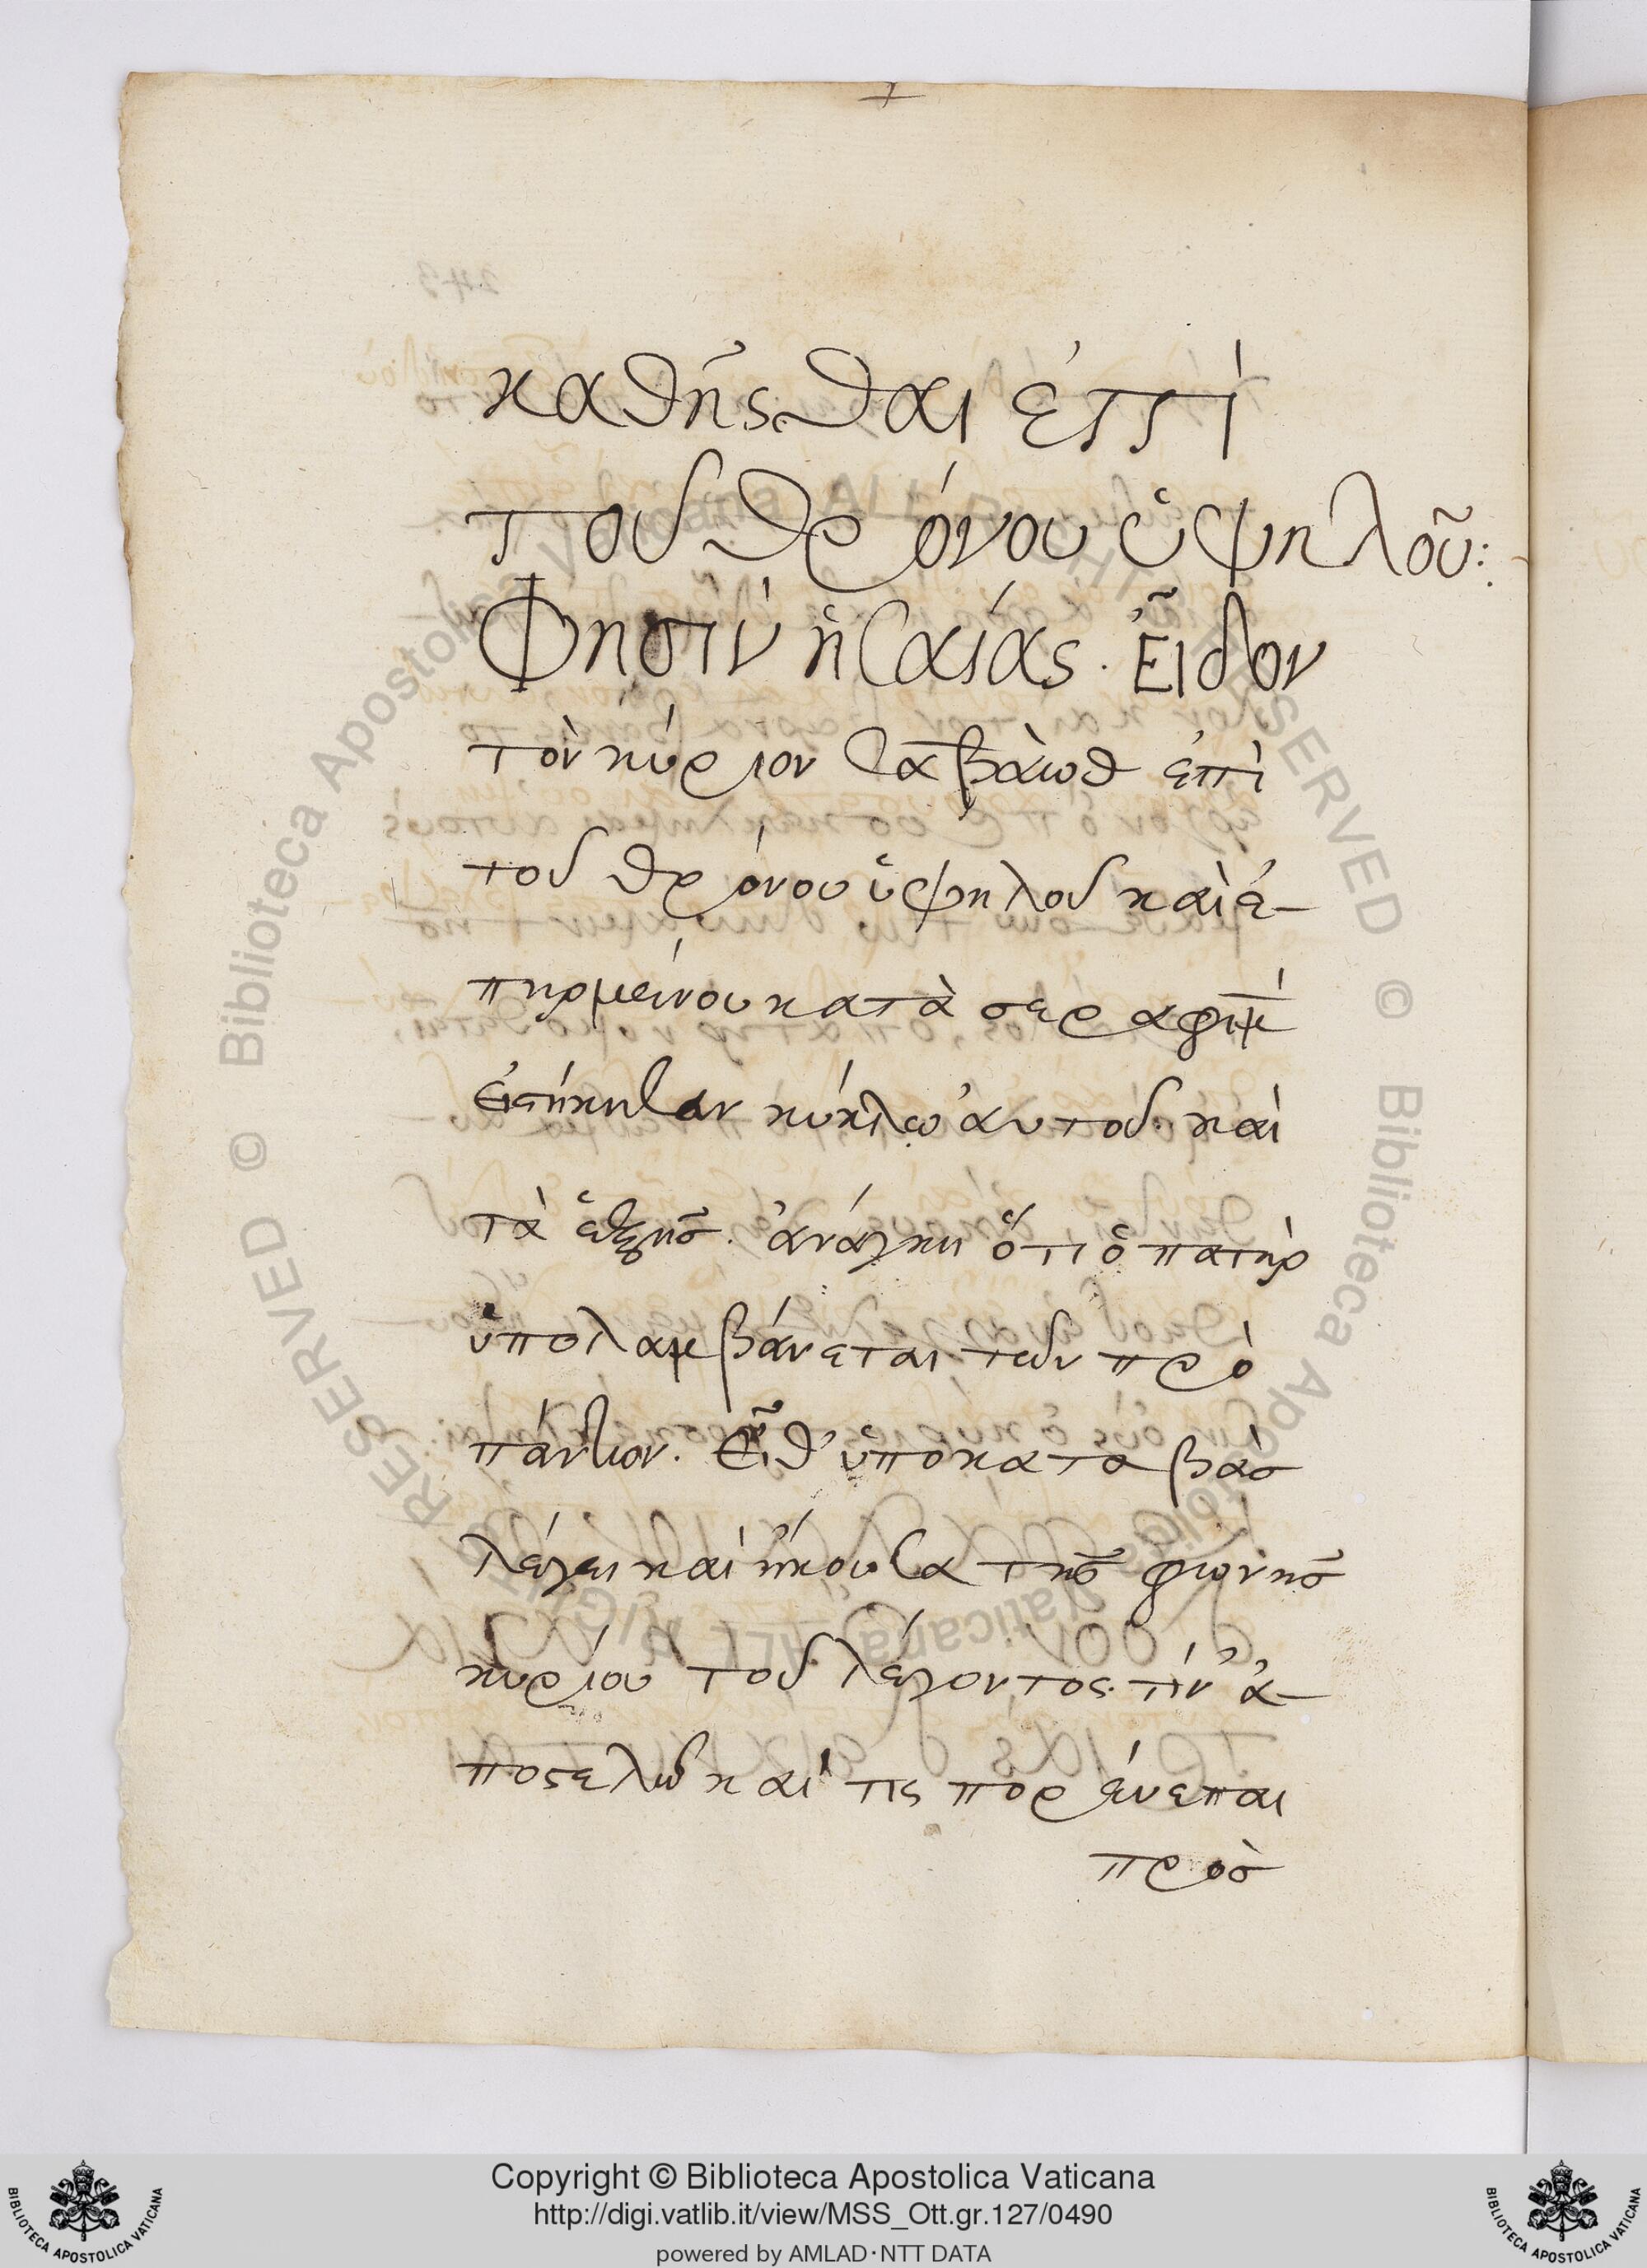 καθῆσθαι ἐπὶ
τοῦ θρόνου ὑψηλοῦ:
Φησὶν ἡσαίας. Εἶδον
τὸν κύριον σαβαὼθ ἐπὶ
τοῦ θρόνου ὑψηλοῦ καὶ ἐ-
πηρμένου κατὰ σεραφὶμ
εἱστήκησαν κύκλω αὐτοῦ. καὶ
τὰ ἑξῆς. ἀνάγκη ὅτι ὁ πατὴρ
ὑπολαμβάνεται τῶν πρὸ
πάντων. Εἶθ' ὑποκαταβὰς
λέγει καὶ ἤκουσα τῆς φωνῆς
κυρίου τοῦ λέγοντος. τίν' ἀ-
ποστελῶ καὶ τίς πορεύεται
πρὸς
Copyright © Biblioteca Apostolica Vaticana
http://digi.vatlib.it/view/MSS_Ott.gr.127/0490
powered by AMLAD·NTT DATA
BIBLIOTECA APOSTOLICA VATICANA
BIBLIOTECA APOSTOLICA VATICANA